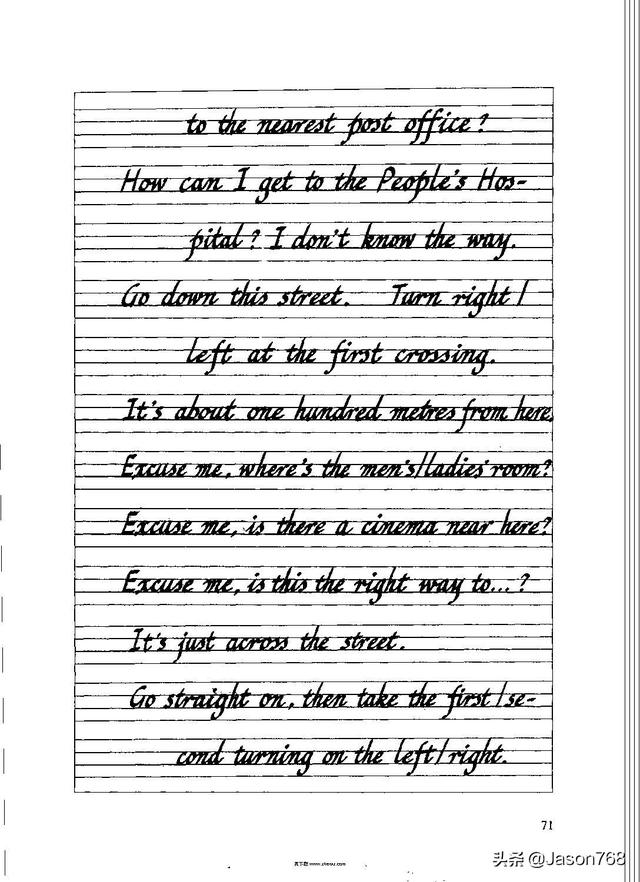 to the nearest post office?
How can I get to the People's Hos-
pital? I don't know the way.
Go down this street. Turn right/
left at the first crossing.
It's about one hundred metres from here.
Excuse me, where's the men's/ladies' room?
Excuse me, is there a cinema near here?
Excuse me, is this the right way to...?
It's just across the street.
Go straight on, then take the first/se-
cond turning on the left/right.
71
头条 @Jason768